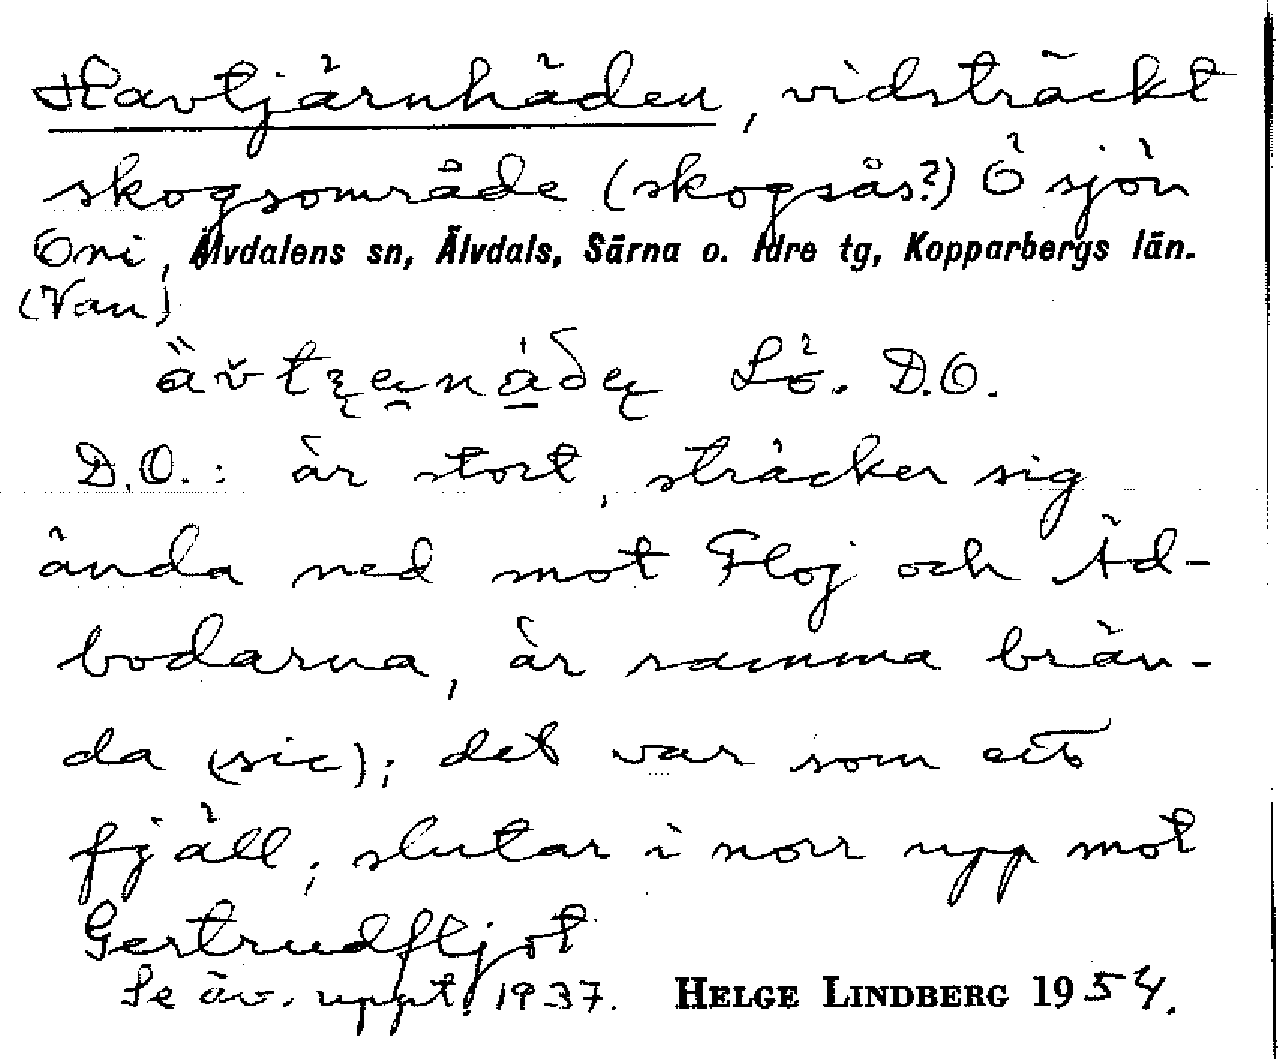 Havtjärnhäden, vidsträckt
skogsområde (skogsås?) Ö sjön
Ori, Älvdalens sn, Älvdals, Särna o. Idre tg, Kopparbergs län.
(Van)
Lö. D.O.
D.O.: är stort, sträcker sig
ända ned mot Floj och Äd-
bodarna, är samma brän-
da (sic); det var som ett
fjäll; slutar i norr upp mot
Gertrudfljot
Se äv. uppt. 1937. HELGE LINDBERG 1954.